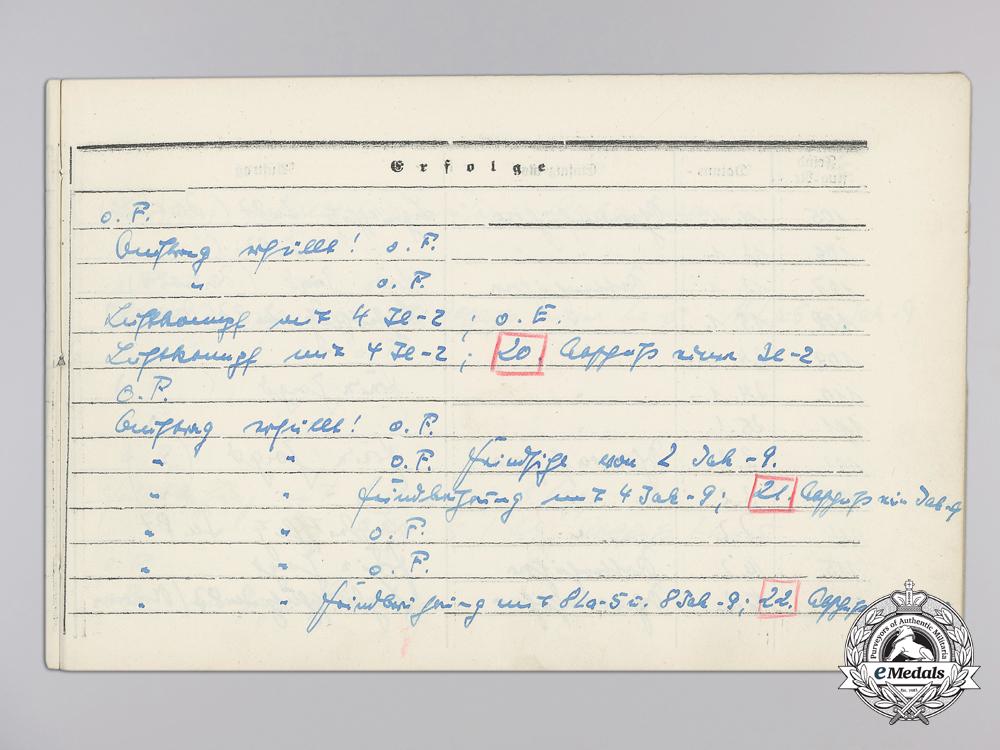 Erfolge
o. F.
Auftrag erfüllt! o. F.
" o. F.
Luftkampf mit 4 Il-2 ; o. E.
Luftkampf mit 4 Il-2 ; 20. Abschuß einer Il-2
o. F.
Auftrag erfüllt! o. F.
" " o. F. von 2 Jak-9.
" " Feindberührung mit 4 Jak-9; 21. Abschuß ein Jak-9
" " o. F.
" " o. F.
" " Feindberührung mit 8 La-5 u. 8 Jak-9; 22. Abschuß
Purveyors of Authentic Militaria
eMedals